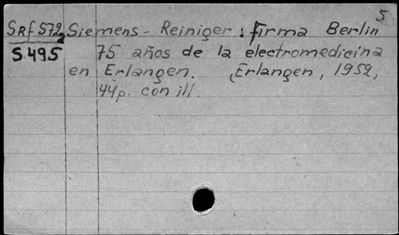 5
SRf 572 Siemens - Reiniger; Firma Berlin
S 495 75 años de la electromedicina
en Erlangen. (Erlangen, 1952,
44p. con ill.